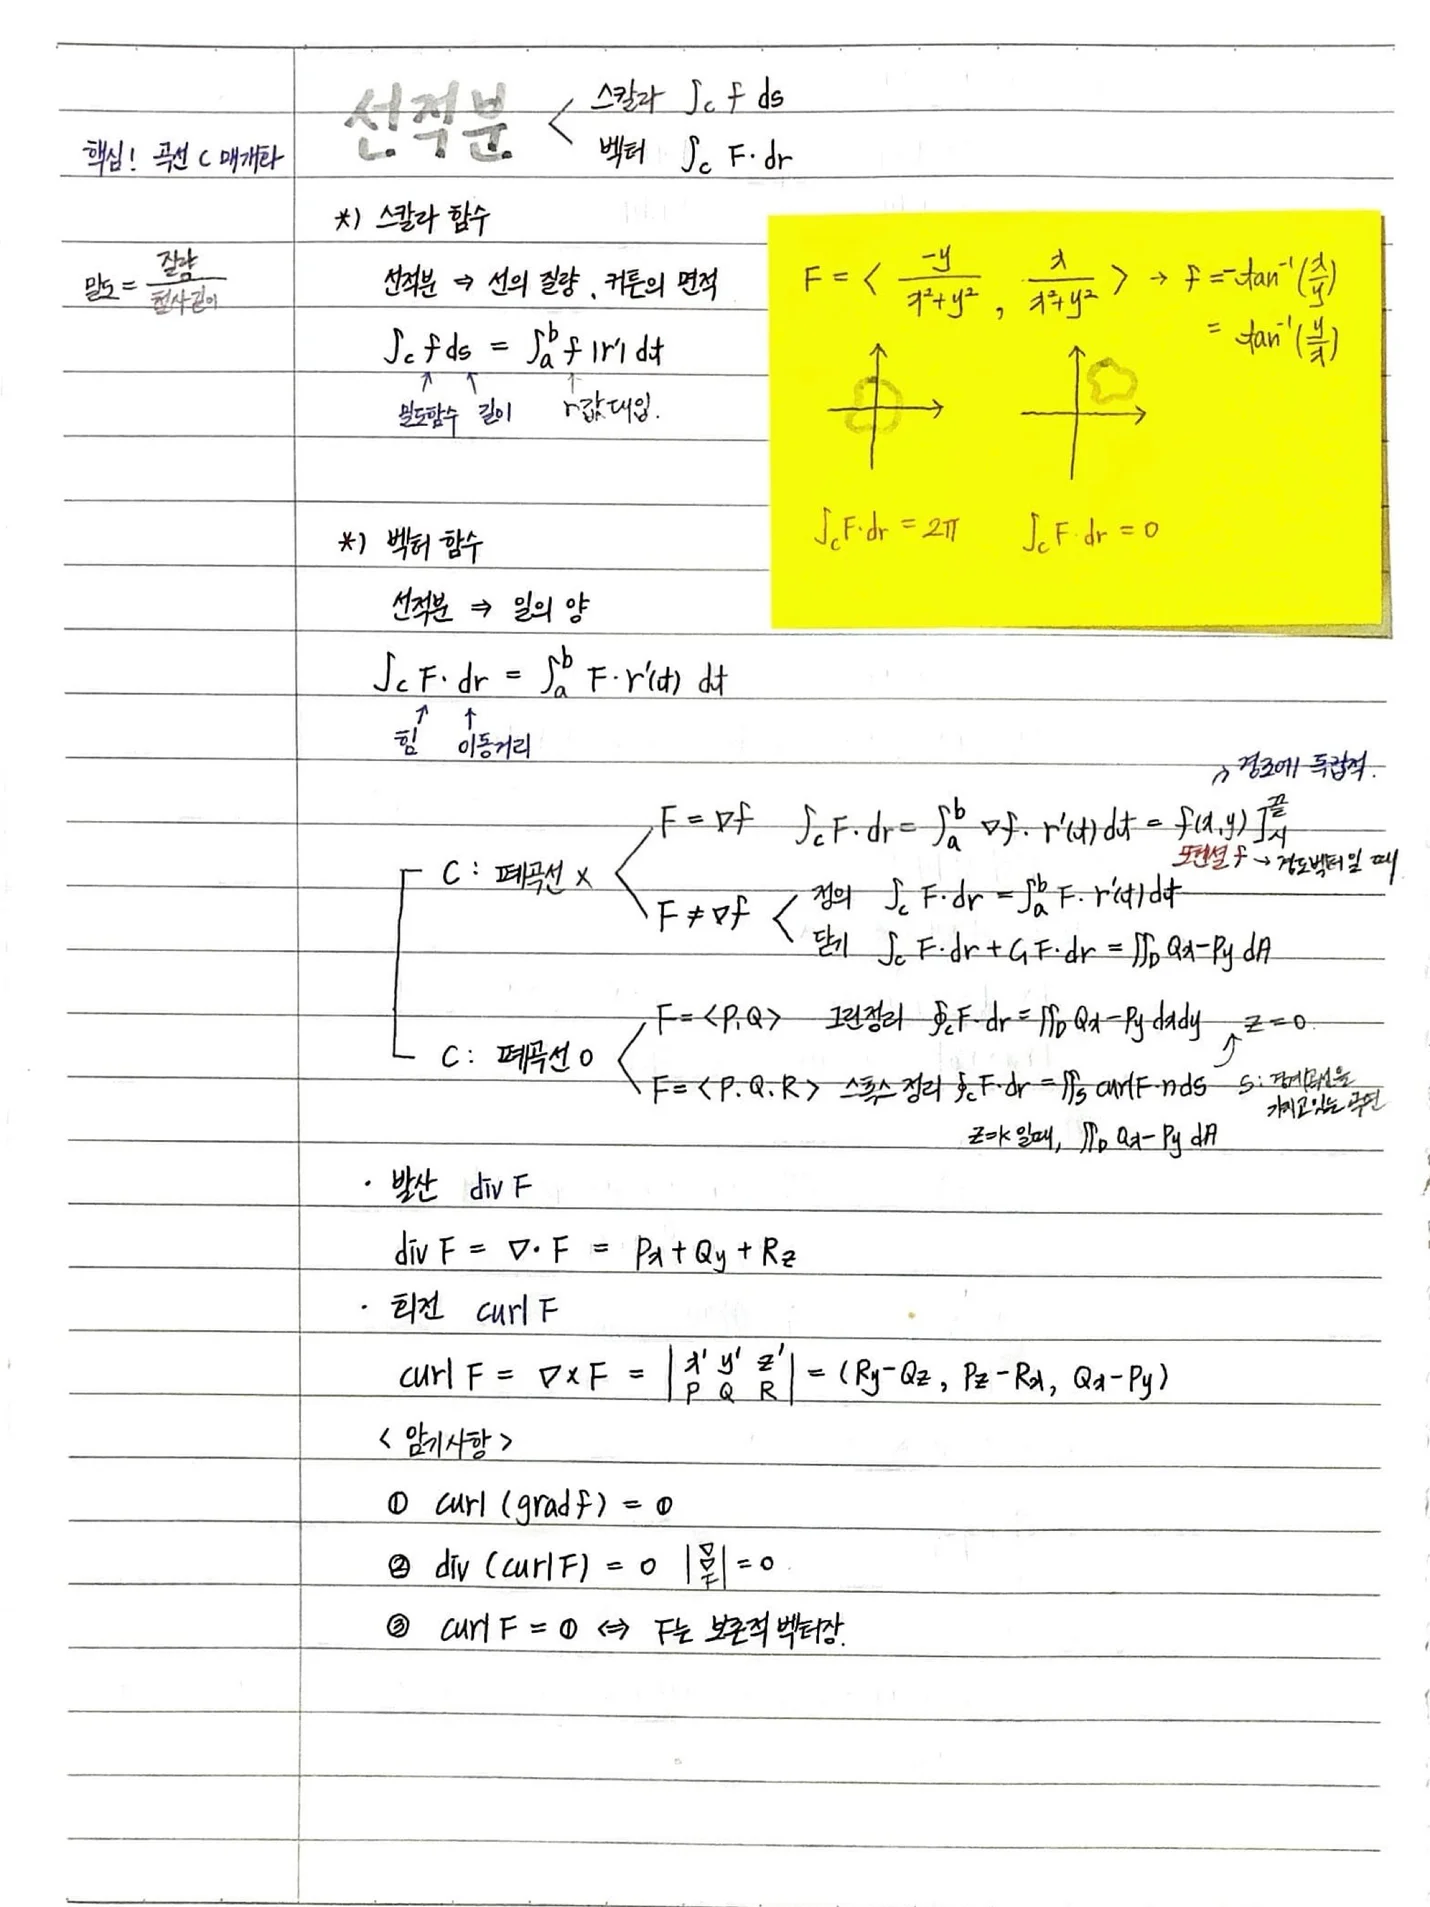 선적분 < 스칼라 ∫c f ds
벡터 ∫c F·dr
핵심! 곡선 C 매개화
*) 스칼라 함수
밀도 = 질량 / 철사길이
선적분 ⇒ 선의 질량, 커튼의 면적
∫c f ds = ∫a^b f |r'| dt
밀도함수 길이 r값 대입.
F = < -y / x²+y² , x / x²+y² > → f = -tan⁻¹(x/y)
= tan⁻¹(y/x)
∫c F·dr = 2π ∫c F·dr = 0
*) 벡터 함수
선적분 ⇒ 일의 양
∫c F·dr = ∫a^b F·r'(t) dt
힘 이동거리
→ 경로에 독립적.
F = ∇f ∫c F·dr = ∫a^b ∇f·r'(t) dt = f(x,y) ]시^끝
포텐셜 f → 경도벡터일 때
C : 폐곡선 x
F ≠ ∇f < 정의 ∫c F·dr = ∫a^b F·r'(t) dt
닫기 ∫c F·dr + C₁ F·dr = ∬D Qx-Py dA
F = <P, Q> 그린정리 ∮c F·dr = ∬D Qx-Py dxdy z=0.
C : 폐곡선 o
F = <P, Q, R> 스톡스 정리 ∮c F·dr = ∬S curl F·n dS S : 경계곡선을
가지고 있는 곡면
z=k 일때, ∬D Qx-Py dA
· 발산 div F
div F = ∇·F = Px + Qy + Rz
· 회전 curl F
curl F = ∇×F = | x' y' z' | = (Ry-Qz, Pz-Rx, Qx-Py)
P Q R
<암기사항>
① curl (grad f) = 𝟘
② div (curl F) = 0 |∇ ∇ F| = 0
③ curl F = 𝟘 ⇔ F는 보존적 벡터장.